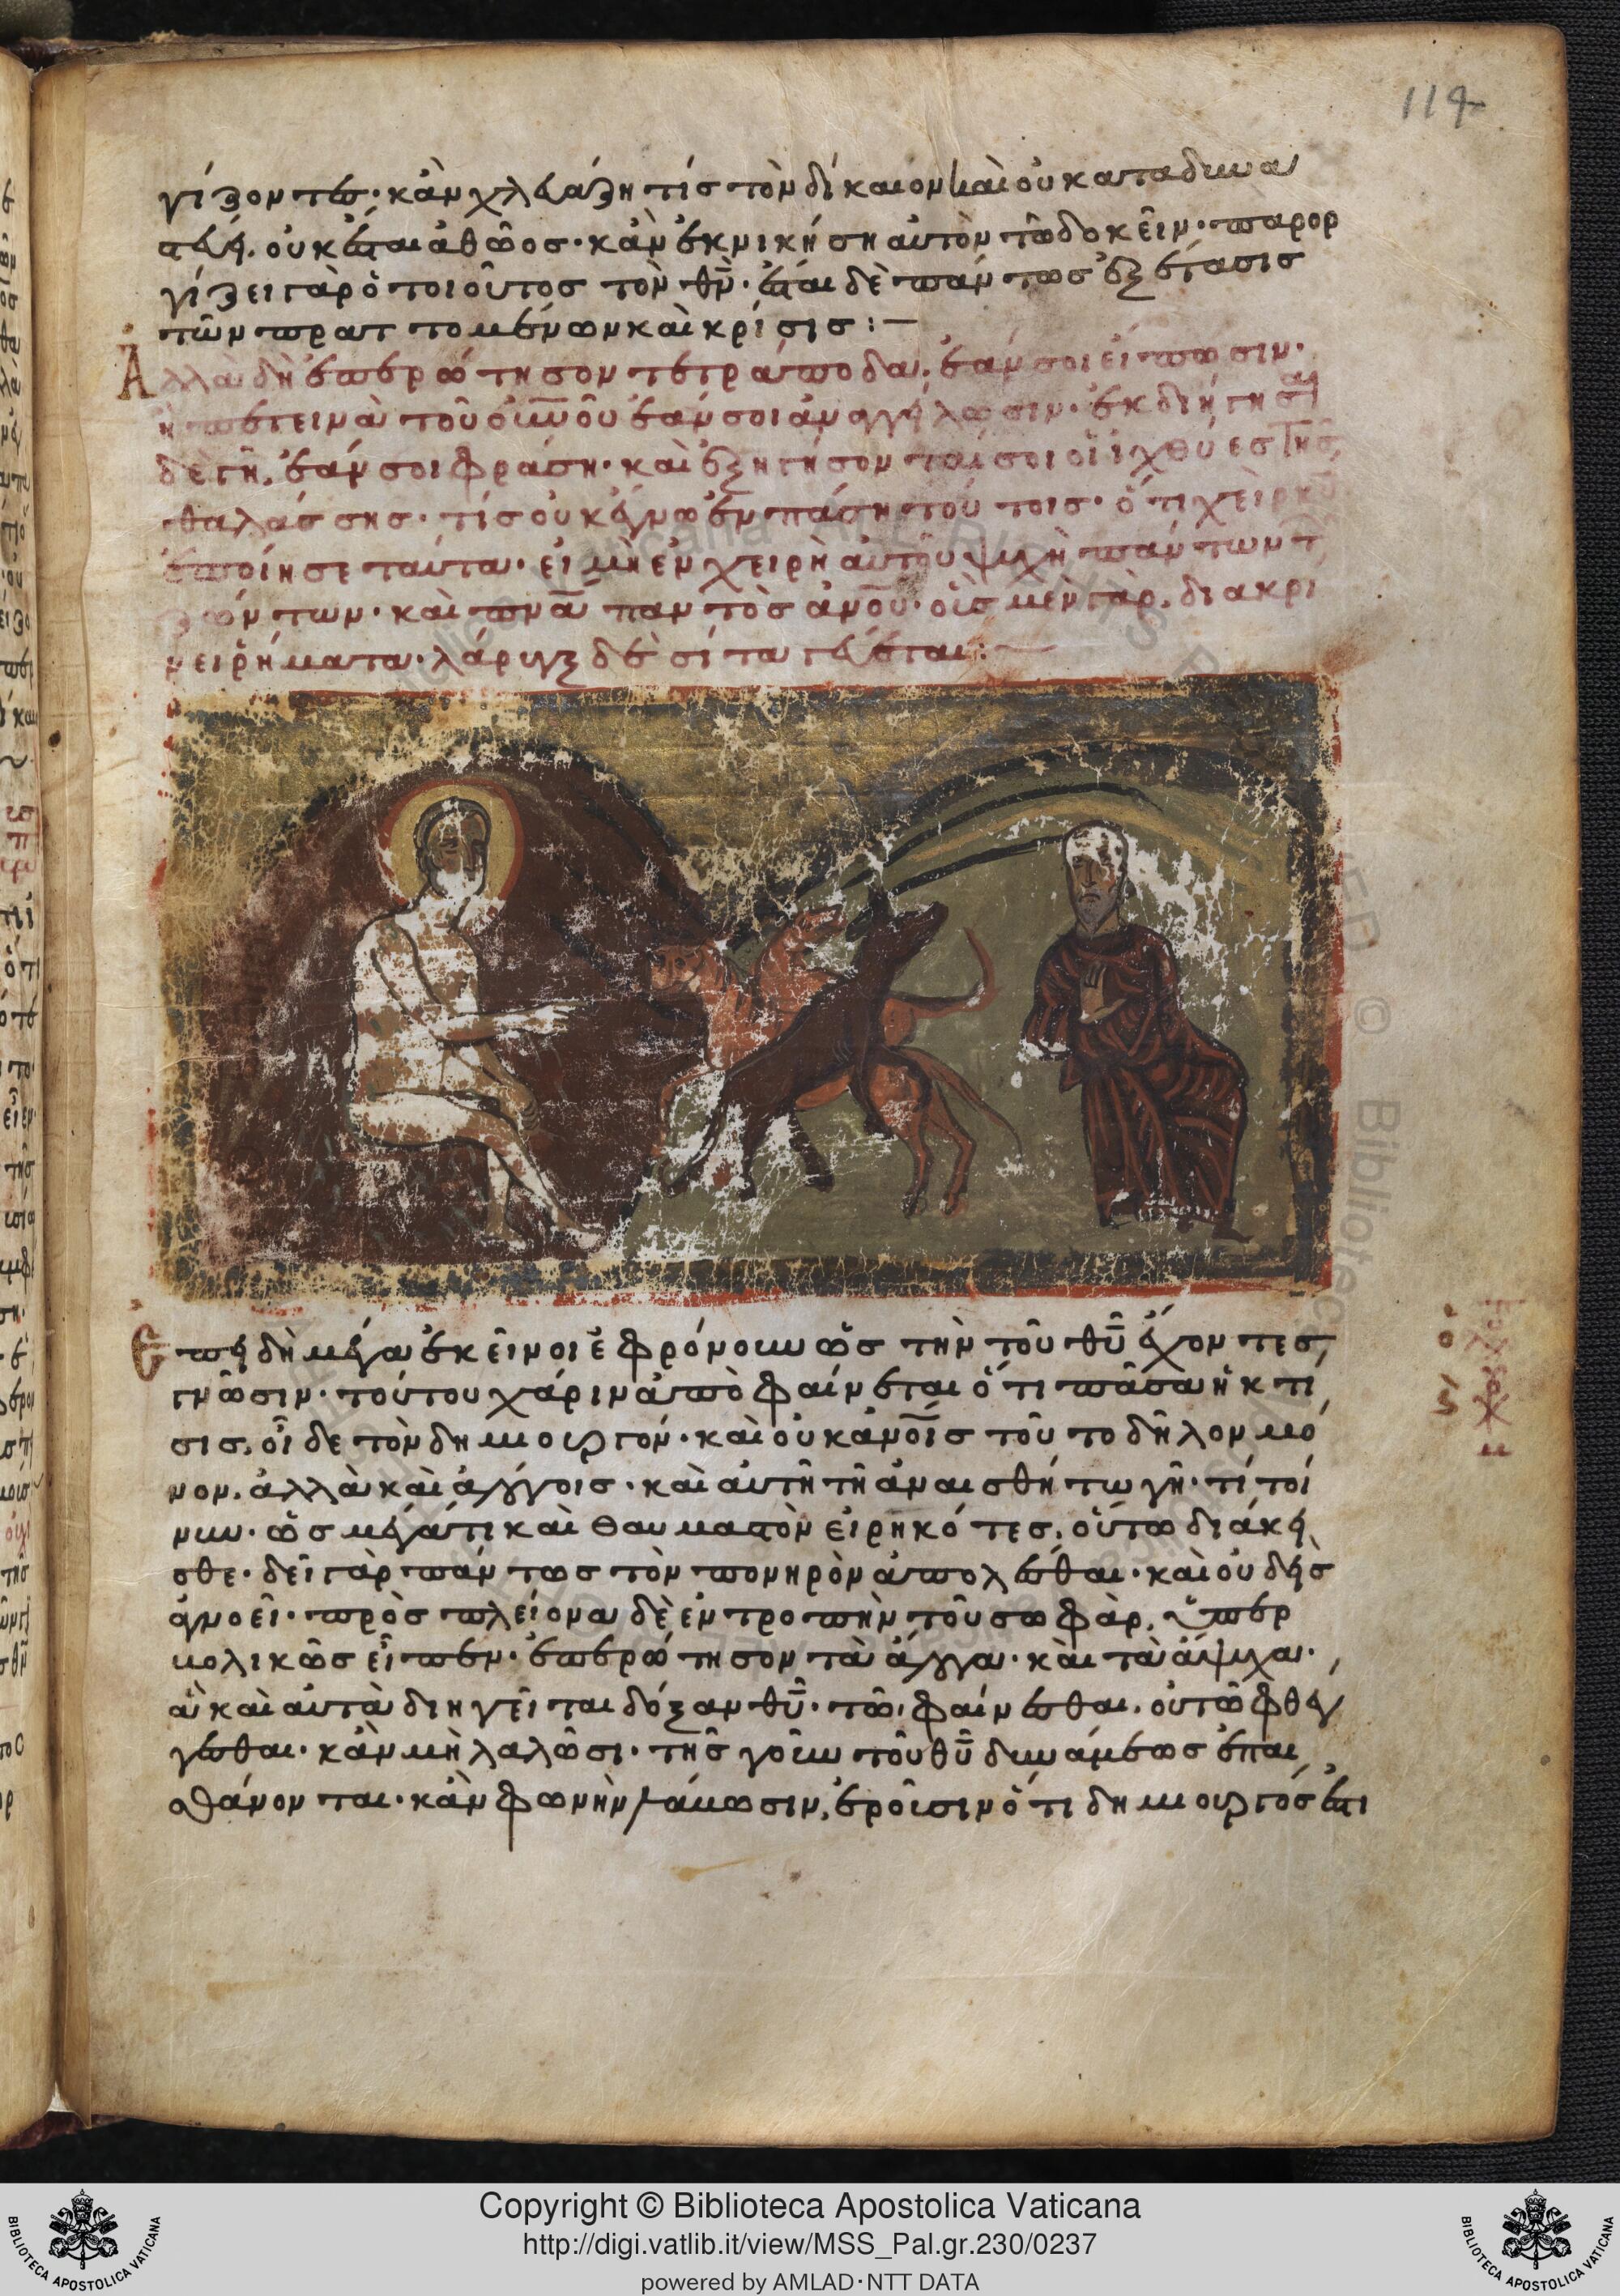 119
γίζοντες· κἂν χλευάζη τίσ τὸν δίκαιον καὶ οὐ καταδυνα
στεύει. οὐκ ἔσται ἀθῶος· κἂν ἐκνικήση αὐτὸν τῶ δοκεῖν· παρορ
γίζει γὰρ ὁ τοιοῦτοσ τὸν θν̅· ἔσται δὲ πάντωσ ἐξέτασισ
τῶν πραττομένων καὶ κρίσισ :—
Ἀλλὰ δὴ ἐπερώτησον τετράποδα. ἐάν σοι εἴπωσιν·
ἢ πετεινὰ τοῦ ουνου ἐάν σοι ἀναγγείλωσιν· ἐκδιήτησαι
δὲ γῆ. ἐάν σοι φράση· καὶ ἐξηγήσονταί σοι οἱ ἰχθύες τῆσ
θαλάσσησ· τίσ οὐκ ἔγνω ἐν πᾶσι τούτοισ· ὅτι χεὶρ κυ
ἐποίησε ταῦτα· εἰ μὴ ἐν χειρὴ αὐτοῦ ψυχὴ πάντων τ
ζώντων· καὶ πνα παντὸσ ἀνου· οὖσ μὲν γὰρ. διακρί
νει ῥήματα· λάρυγξ δὲ σῖτα γεύεται :—
Ἐπειδὴ μέγα ἐκεῖνοι ἐφρόνουν ὡσ τὴν τοῦ θυ ἔχοντεσ
γνῶσιν· τούτου χάριν ἀποφαίνεται ὅτι πᾶσα ἡ κτί
σισ. οἶδε τὸν δημιουργόν· καὶ οὐκ ἀνοισ τοῦτο δῆλον μό
νον. ἀλλὰ καὶ ἀλόγοισ· καὶ αὐτῆ τῆ ἀναισθήτω γῆ· τί τοί
νυν· ὡσ μέγα τι καὶ θαυμαστὸν εἰρηκότεσ. οὕτω διάκει
σθε· δεῖ γὰρ πάντωσ τὸν πονηρὸν ἀπολέσθαι· καὶ οὐδεὶσ
ἀγνοεῖ· πρὸσ πλείονα δὲ ἐντροπὴν τοῦ σωφὰρ. ὑπερ
βολικῶσ εἶπεν· ἐπερώτησον τὰ ἄλογα· καὶ τὰ ἄψυχα·
ἃ καὶ αὐτὰ διηγεῖται δόξαν θυ· τῶ φαίνεσθαι. οὕτω φθέγ
γεσθαι· κἂν μὴ λαλῶσι· τῆσ γοῦν τοῦ θυ δυνάμεωσ ἐπαι
σθάνονται· κἂν φωνὴν λάβωσιν. ἐροῦσιν ὅτι δημιουργόσ ἐστι
Copyright © Biblioteca Apostolica Vaticana
http://digi.vatlib.it/view/MSS_Pal.gr.230/0237
powered by AMLAD·NTT DATA
BIBLIOTECA APOSTOLICA VATICANA
BIBLIOTECA APOSTOLICA VATICANA